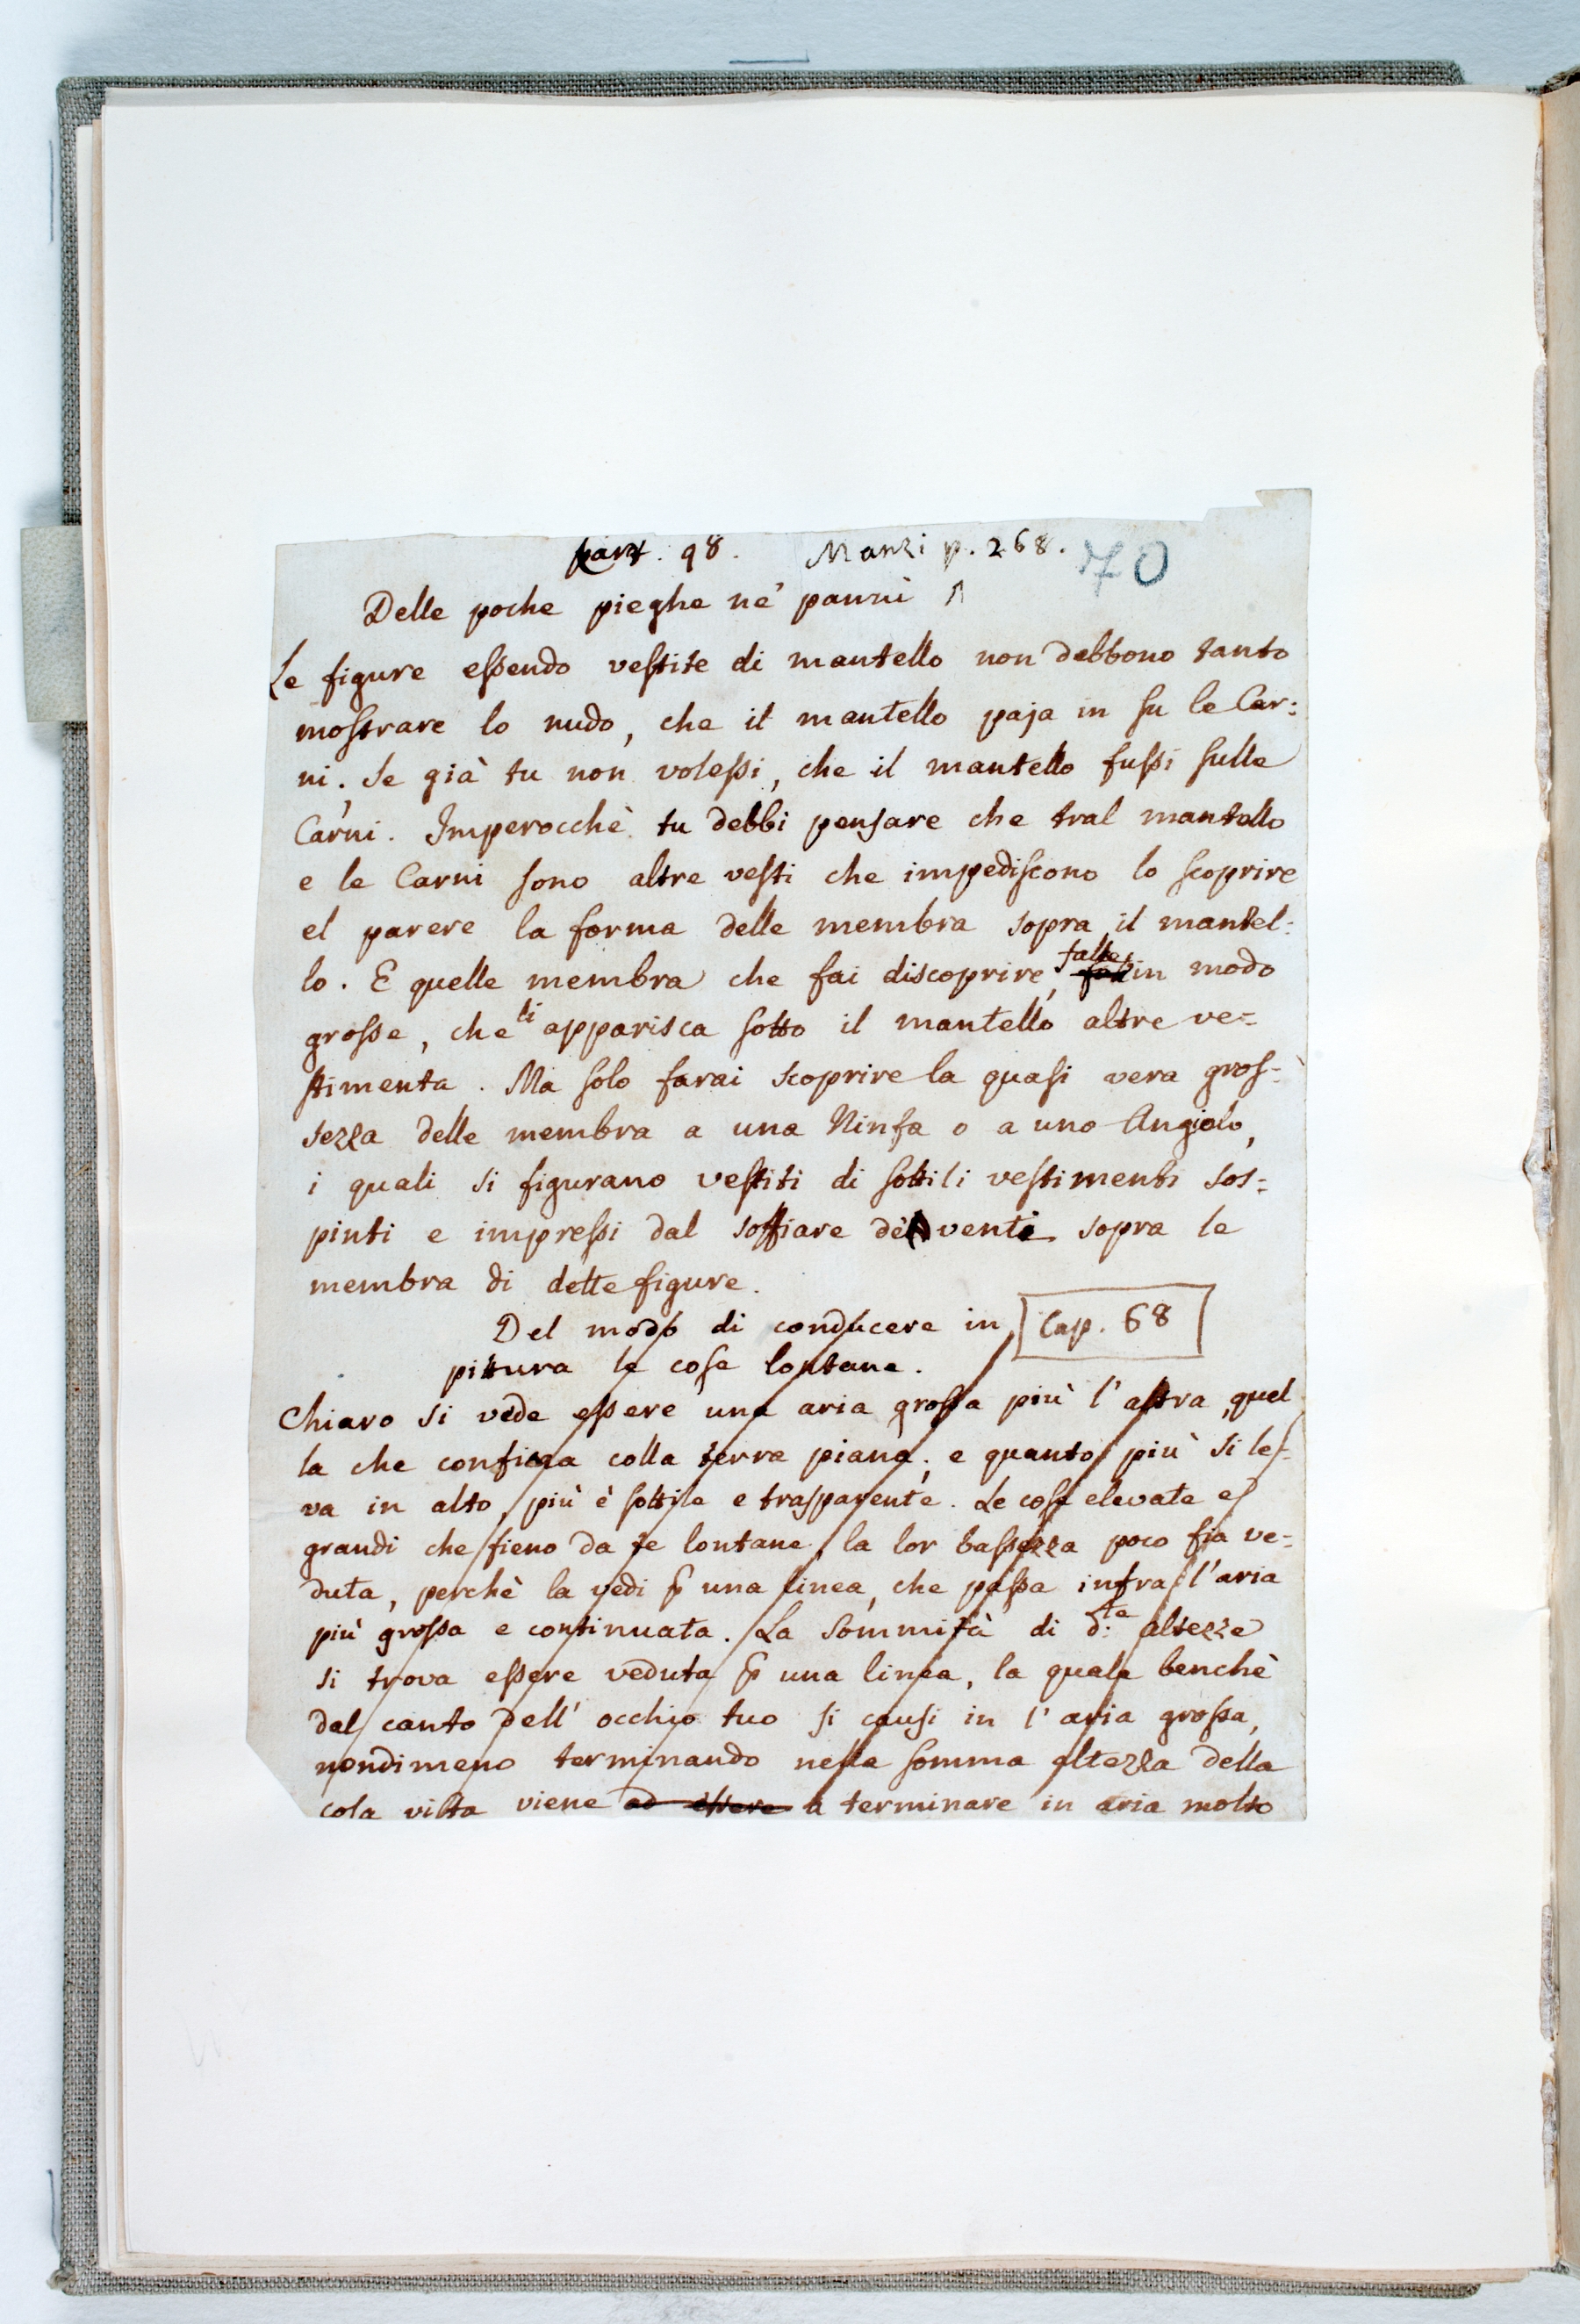 part. 98. Manzi p. 268. 70
Delle poche pieghe ne' panni
Le figure essendo vestite di mantello non debbono tanto
mostrare lo nudo, che il mantello paja in su le Car:
ni. Se già tu non volessi, che il mantello fussi sulle
Carni. Imperocchè tu debbi pensare che tral mantello
e le Carni sono altre vesti che impediscono lo scoprire
el parere la forma delle membra sopra il mantel:
lo. E quelle membra che fai discoprire, falle in modo
grosse, che li apparisca sotto il mantello altre ve=
stimenta. Ma solo farai scoprire la quasi vera gros=
sezza delle membra a una Ninfa o a uno Angiolo,
i quali si figurano vestiti di sottili vestimenti sos=
pinti e impressi dal soffiare de venti sopra le
membra di dette figure.
Del modo di conducere in Cap. 68
pittura le cose lontane.
Chiaro si vede essere una aria grossa più l'altra, quel
la che confina colla terra piana; e quanto più si le=
va in alto, più è sottile e trasparente. Le cose elevate e
grandi che fieno da te lontane, la lor bassezza poco fia ve=
duta, perchè la vedi p una linea, che passa infra l'aria
più grossa e continuata. La sommità di d:te altezze
si trova essere veduta p una linea, la quale benchè
dal canto dell' occhio tuo si causi in l'aria grossa,
nondimeno terminando nella somma altezza della
cosa vista viene ad essere a terminare in aria molto